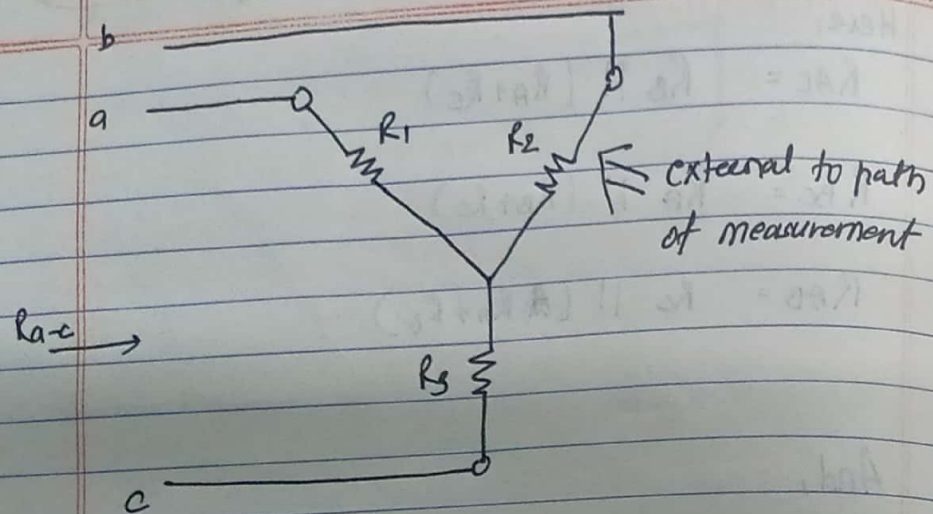 b
a
R1
R2
external to path
of measurement
Ra-c
R3
c